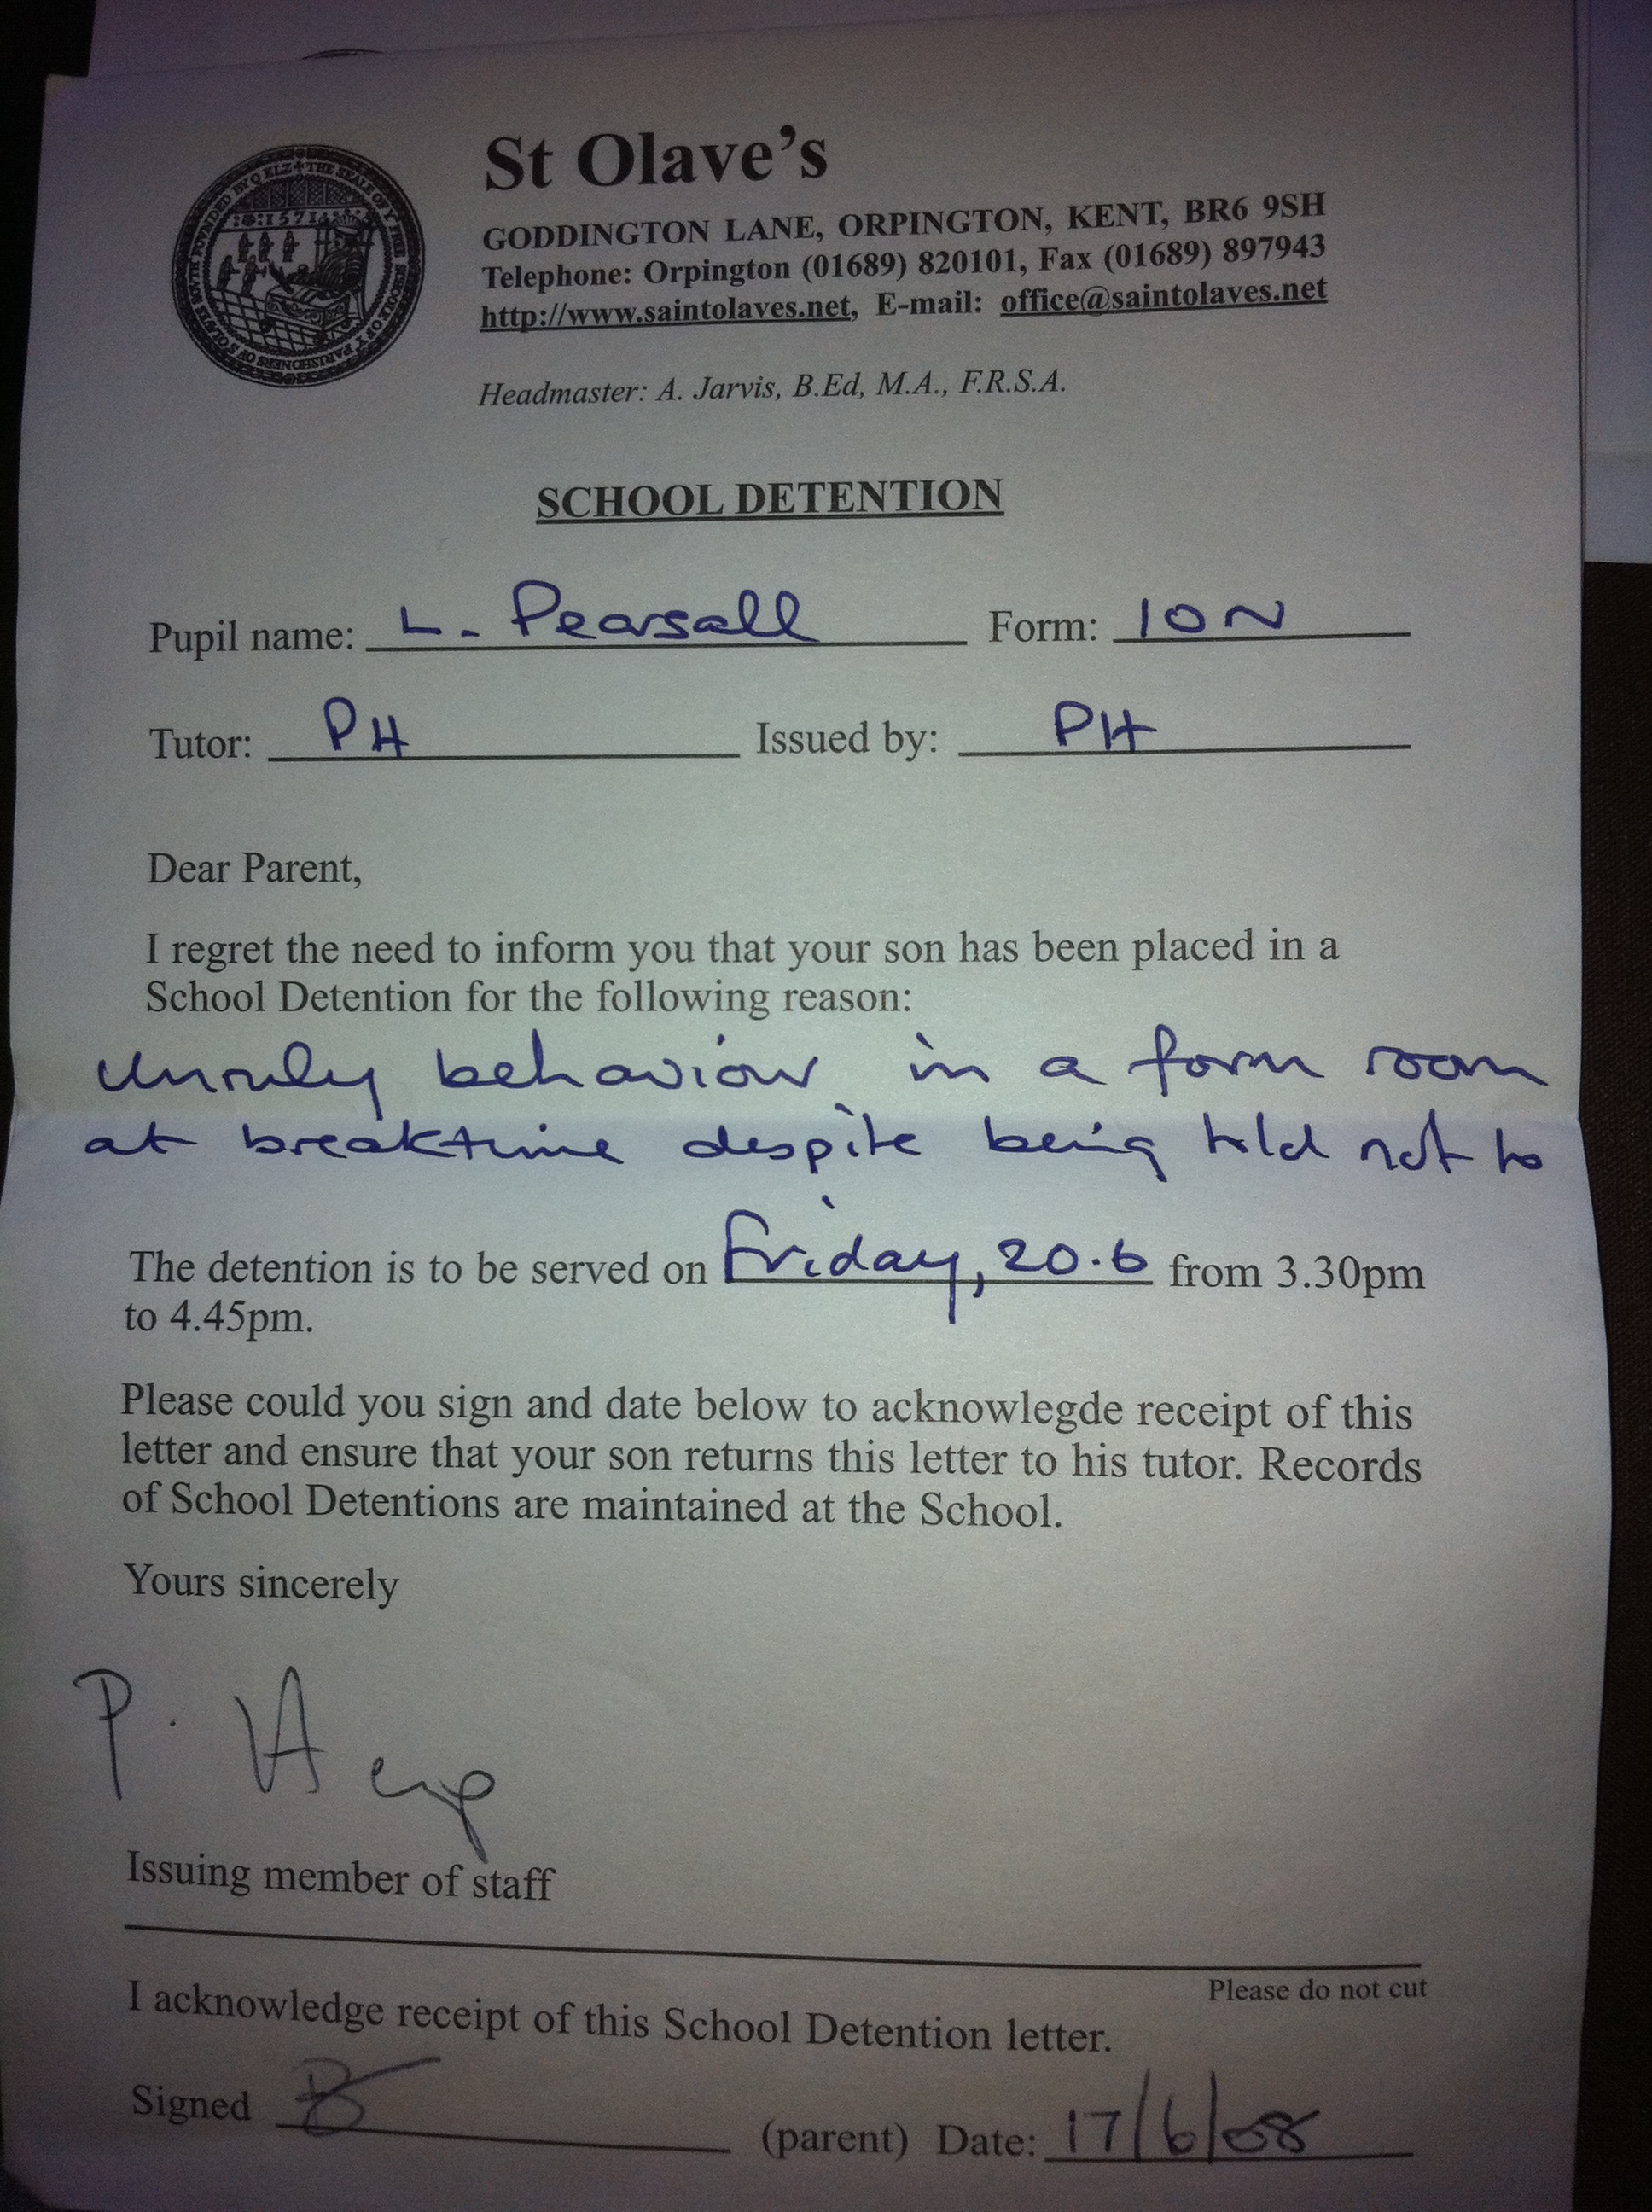 THE SEALE OF Y FREE SCHOOLE OF Y PARISHONERS OF S OLAVES SOUTHWARK FOUNDED BY Q ELZ
1571
St Olave's
GODDINGTON LANE, ORPINGTON, KENT, BR6 9SH
Telephone: Orpington (01689) 820101, Fax (01689) 897943
http://www.saintolaves.net, E-mail: office@saintolaves.net
Headmaster: A. Jarvis, B.Ed, M.A., F.R.S.A.
SCHOOL DETENTION
Pupil name: L. Pearsall Form: 10N
Tutor: PH Issued by: PH
Dear Parent,
I regret the need to inform you that your son has been placed in a
School Detention for the following reason:
Unruly behaviour in a form room
at breaktime despite being told not to
The detention is to be served on Friday, 20.6 from 3.30pm
to 4.45pm.
Please could you sign and date below to acknowlegde receipt of this
letter and ensure that your son returns this letter to his tutor. Records
of School Detentions are maintained at the School.
Yours sincerely
P.
Issuing member of staff
Please do not cut
I acknowledge receipt of this School Detention letter.
Signed (parent) Date: 17/6/08